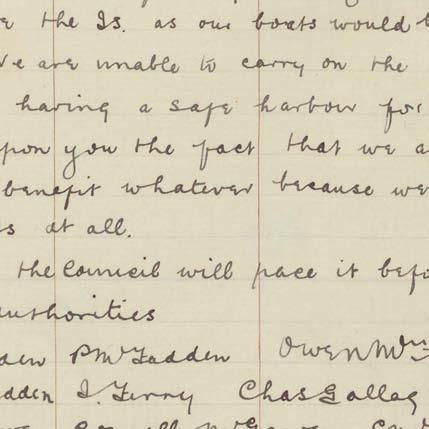 the Is. as our boats would
We are unable to carry on the
having a safe harbour for
upon you the fact that we a
benefit whatever because we
s at all.
the Council will pace it befo
authorities
dden P McFadden Owen
dden J. Ferry Chas Gallag